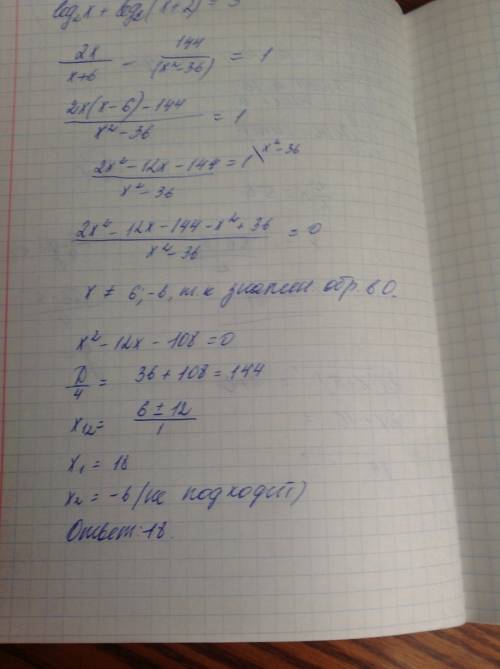 log₂x + log₂(x+2) = 3
2x/(x+6) − 144/(x²−36) = 1
(2x(x−6)−144)/(x²−36) = 1
(2x²−12x−144)/(x²−36) = 1 \ x²−36
(2x²−12x−144−x²+36)/(x²−36) = 0
x ≠ 6;−6, т.к знамен обр. в 0.
x²−12x−108=0
D/4 = 36+108=144
x₁₂= (6±12)/1
x₁ = 18
x₂ = −6 (не подходит)
Ответ: 18.